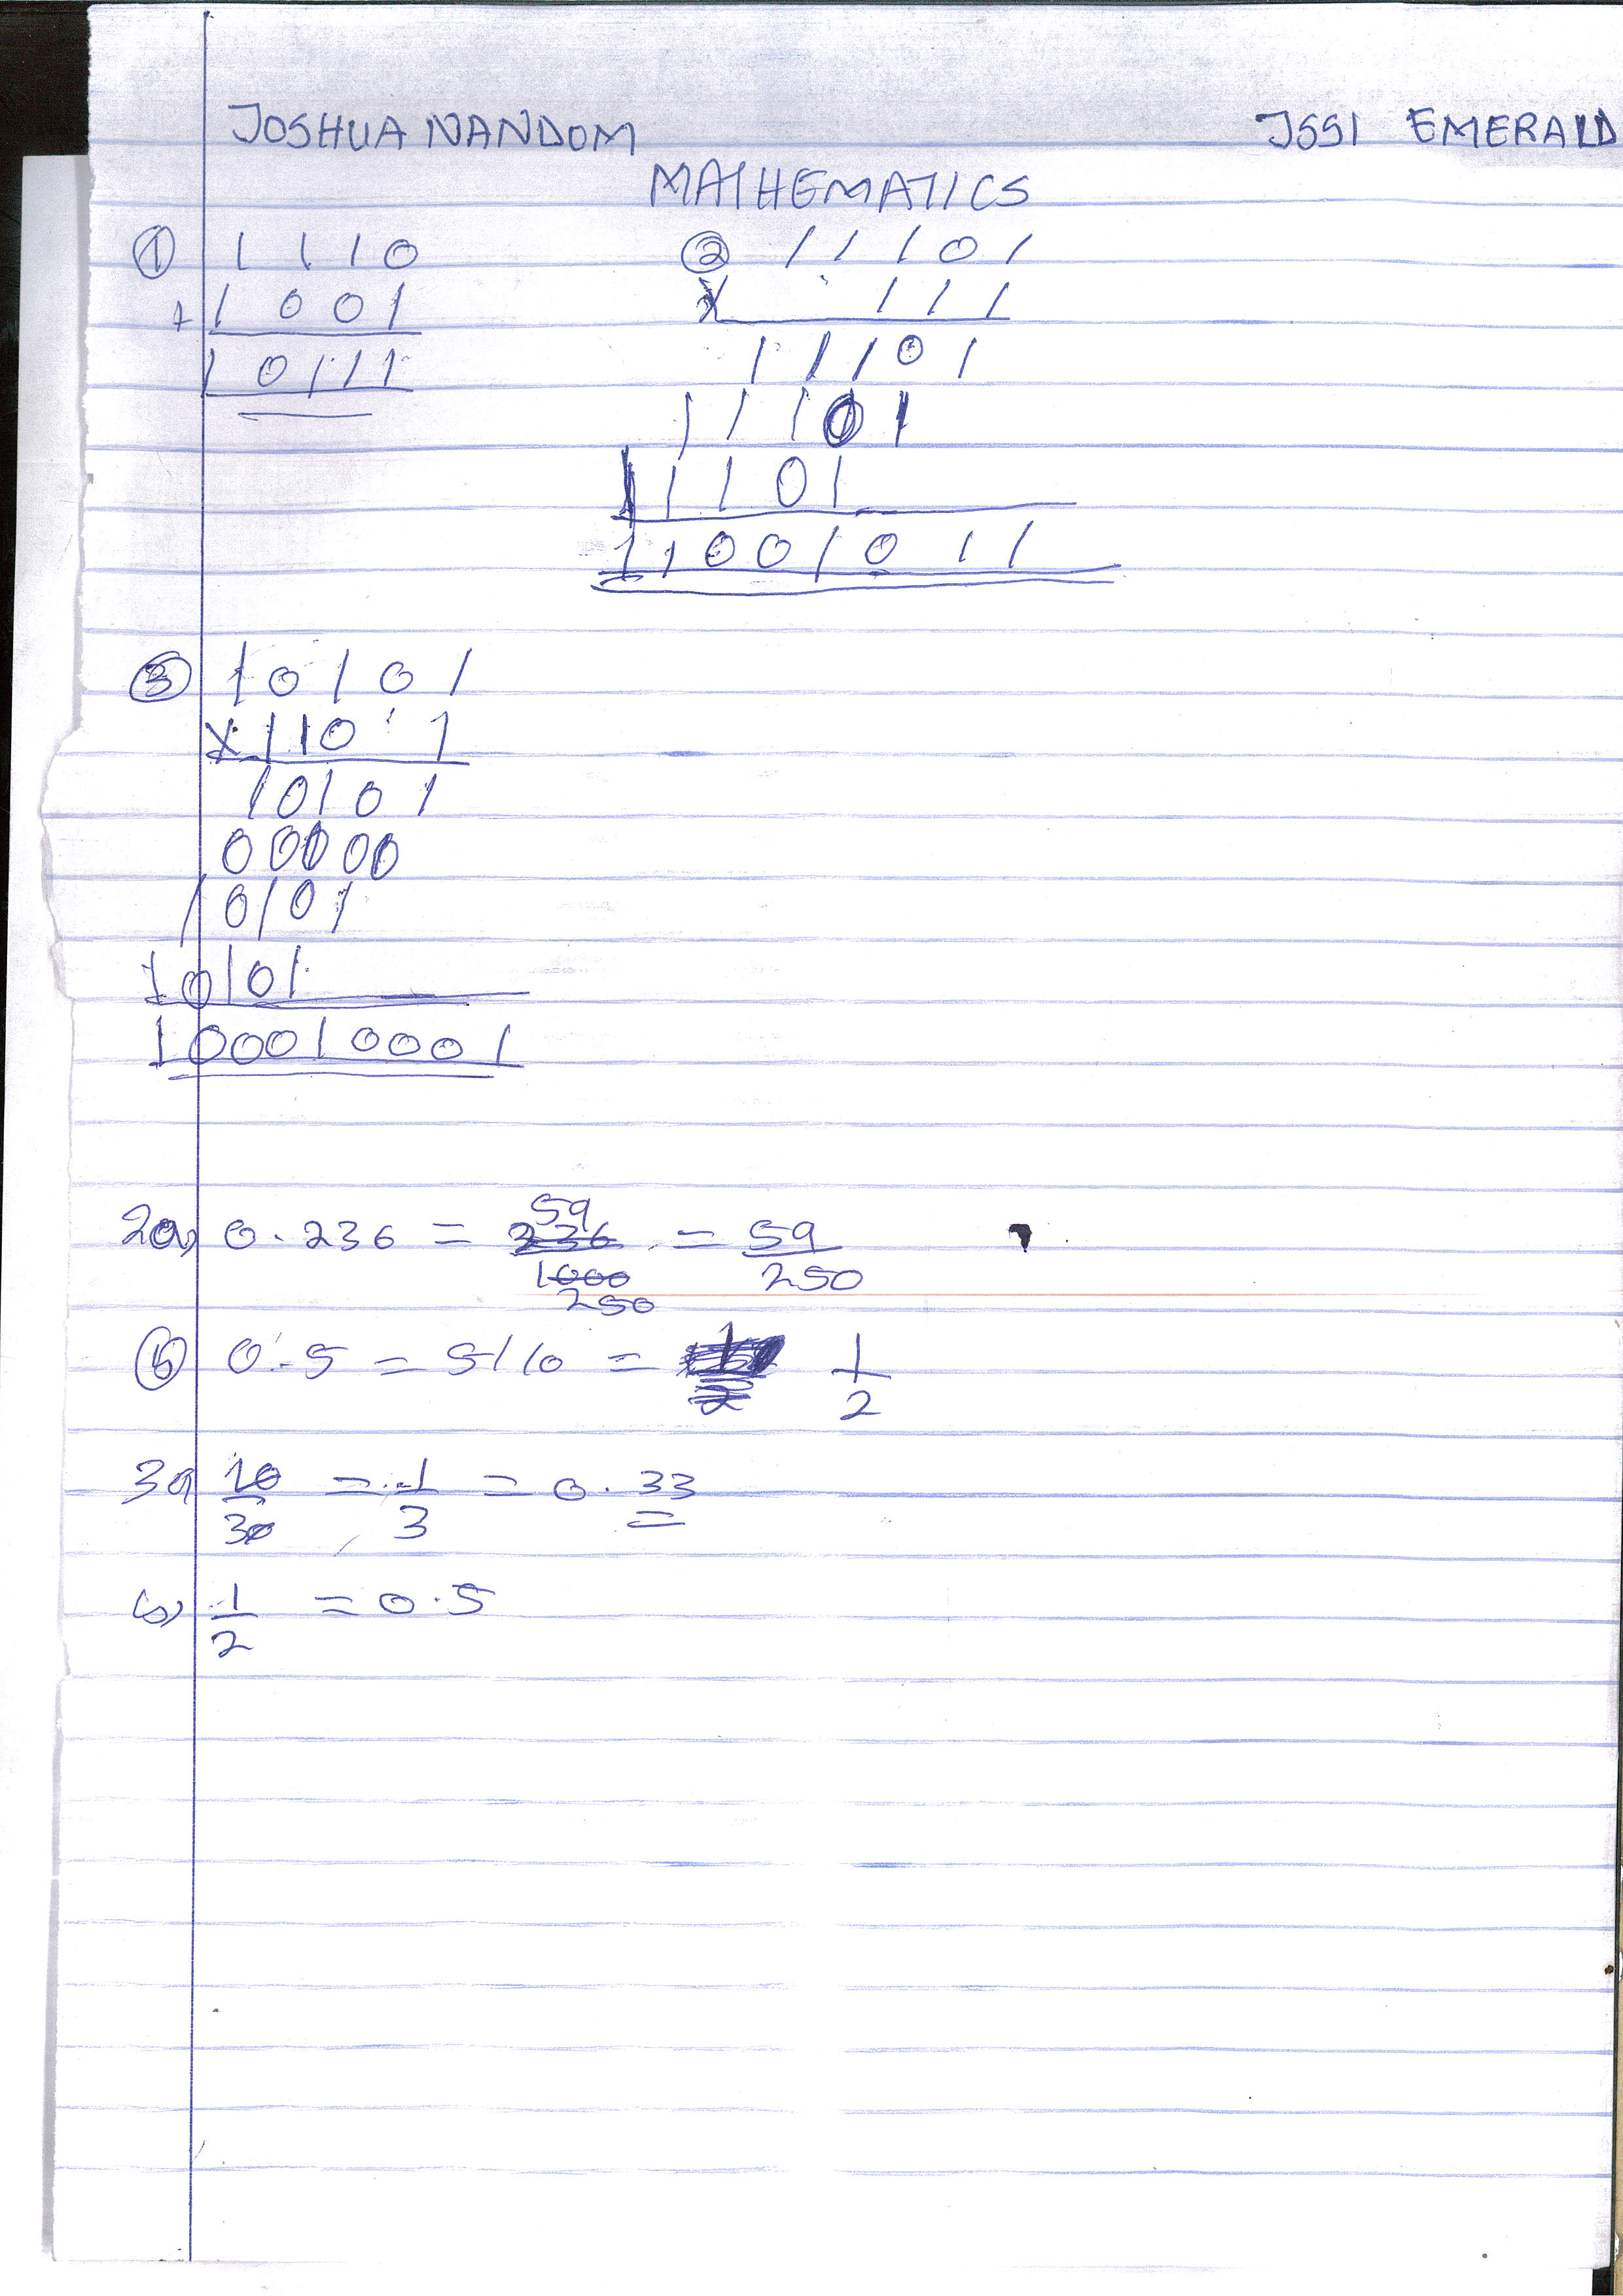 JOSHUA NANDOM JSS1 EMERALD
MATHEMATICS
① 1 1 1 0
+ 1 0 0 1
1 0 1 1 1
② 1 1 1 0 1
X 1 1 1
1 1 1 0 1
1 1 1 0 1
1 1 1 0 1
1 1 0 0 1 0 1 1
③ 1 0 1 0 1
X 1 1 0 1
1 0 1 0 1
0 0 0 0 0
1 0 1 0 1
1 0 1 0 1
1 0 0 0 1 0 0 0 1
59
2a) 0.236 = 236/1000 = 59/250
250
ⓑ 0.5 = 5/10 = 1/2
3a 10/30 = 1/3 = 0.33
b) 1/2 = 0.5